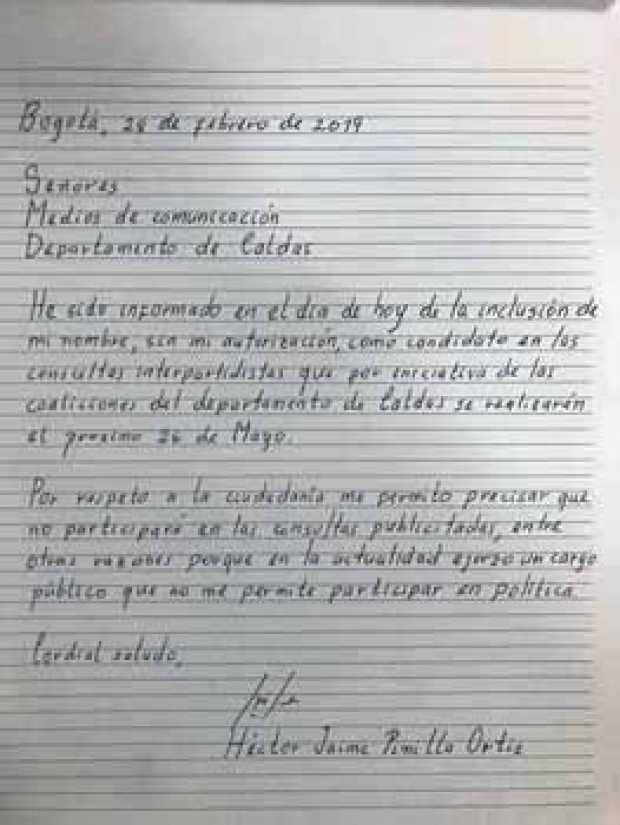 Bogotá, 28 de febrero de 2019
Señores
Medios de comunicación
Departamento de Caldas
He sido informado en el día de hoy de la inclusión de
mi nombre, sin mi autorización, como candidato en las
consultas interpartidistas que por iniciativa de las
coaliciones del departamento de Caldas se realizarán
el proximo 26 de Mayo.
Por respeto a la ciudadanía me permito precisar que
no participaré en las consultas publicitadas, entre
otras razones porque en la actualidad ejerzo un cargo
público que no me permite participar en política.
Cordial saludo,
Héctor Jaime Pinilla Ortiz